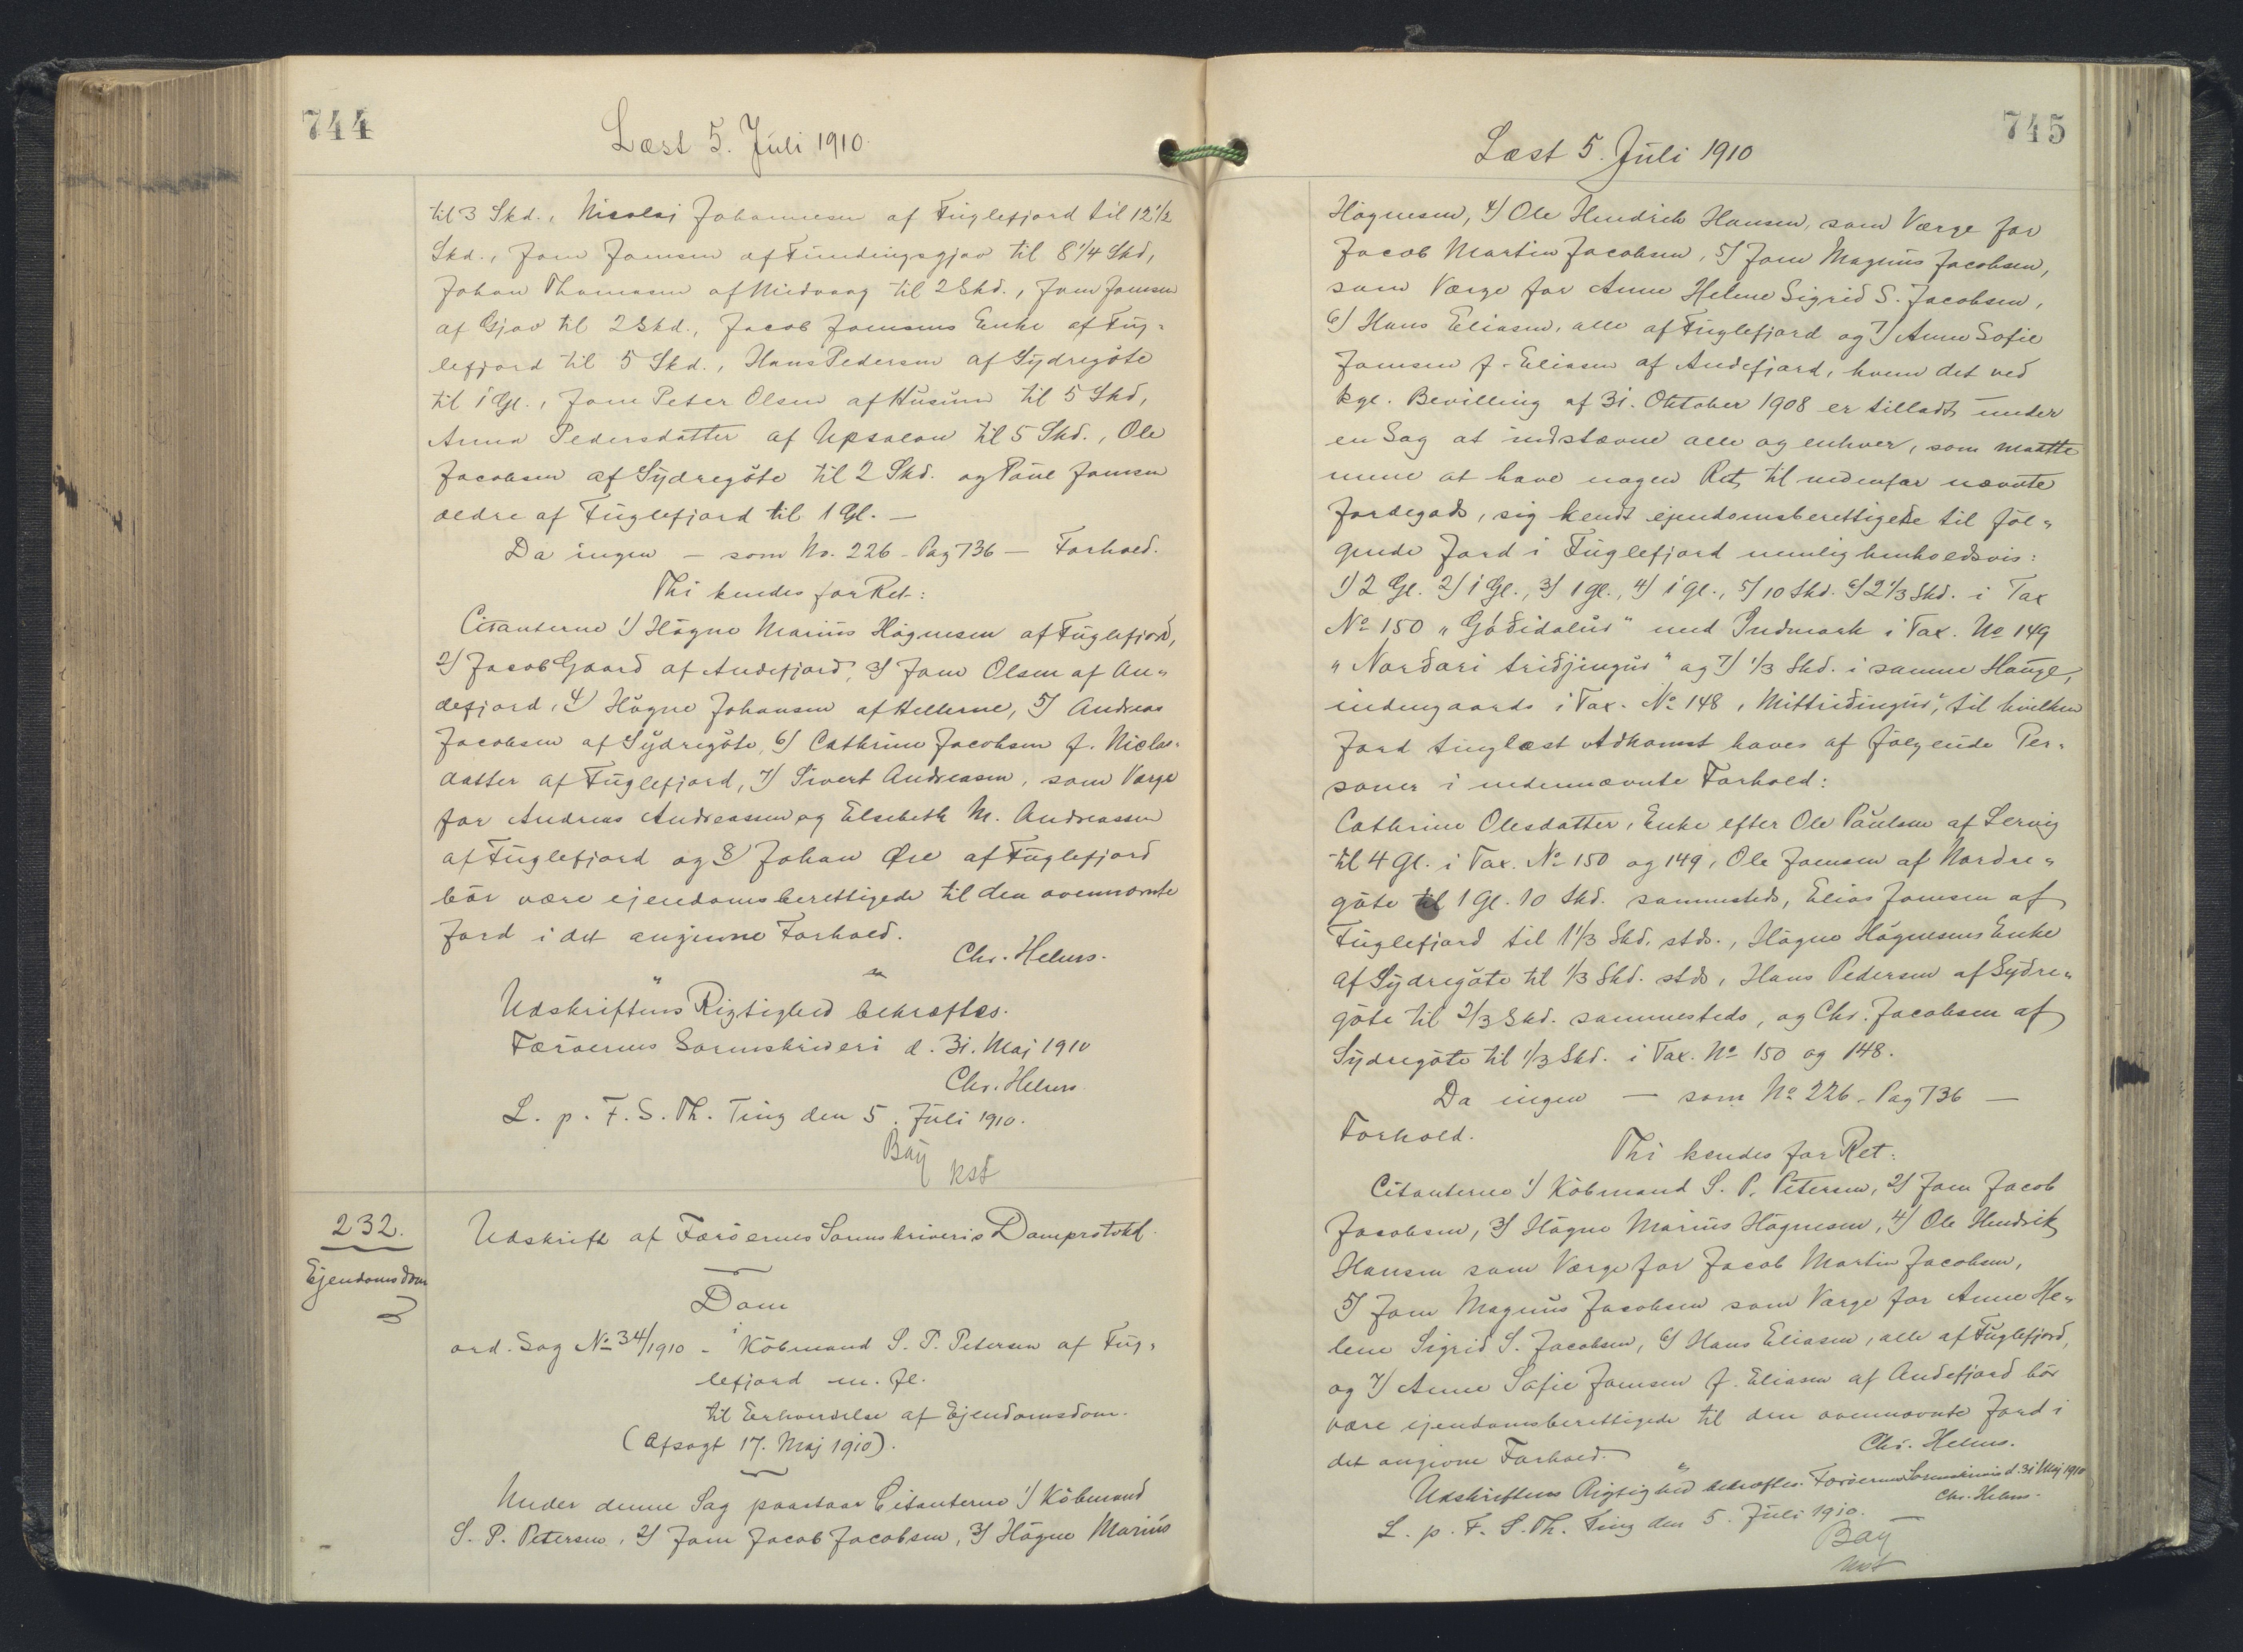 744
Læst 5. Juli 1910.
til 3 Skd., Nicolaj Johannesen af Fuglefjord til 12 1/2
Skd., Joen Joensen af Fundingsgjov til 8 1/4 Skd,
Johan Thomasen af Midvaag til 2 Skd., Joen Joensen
af Gjov til 2 Skd., Jacob Joensens Enke af Fug-
lefjord til 5 Skd., Hans Pedersen af Sydregöte
til 1 Gl., Joen Peter Olsen af Husum til 5 Skd,
Anna Pedersdatter af Upsalon til 5 Skd., Ole
Jacobsen af Sydregöte til 2 Skd. og Poul Joensen
ældre af Fuglefjord til 1 Gl. —
Da ingen — som No. 226 - Pag 736 — Forhold.
Thi kendes for Ret:
Citanterne 1) Högne Marius Högnesen af Fuglefjord,
2) Jacob Gaard af Andefjord, 3) Joen Olsen af An-
defjord, 4) Högne Johansen af Hellerne, 5) Andreas
Jacobsen af Sydregöte, 6) Cathrine Jacobsen f. Niclas-
datter af Fuglefjord, 7) Sivert Andreasen, som Værge
for Andreas Andreassen og Elsebeth M. Andreassen
af Fuglefjord og 8) Johan Øre af Fuglefjord
bör være ejendomsberettigede til den ovennævnte
Jord i det angivne Forhold.
Chr. Helms.
Udskriftens Rigtighed bekræftes.
Færöernes Sorenskriveri d. 31. Maj 1910
Chr. Helms.
L. p. F. S. Th. Ting den 5. Juli 1910.
Bay
kst
232.
Ejendomsdom
Udskrift af Færöernes Sorenskriveris Domprotokol.
Dom
i
ord. Sag No 34/1910 - Köbmand S. P. Petersen af Fug-
lefjord m. fl.
til Erhvervelse af Ejendomsdom.
(Afsagt 17. Maj 1910).
Under denne Sag paastaar Citanterne 1) Köbmand
S. P. Petersen, 2) Joen Jacob Jacobsen, 3) Högne Marius
745
Læst 5. Juli 1910
Högnesen, 4) Ole Hendrik Hansen, som Værge for
Jacob Martin Jacobsen, 5) Joen Magnus Jacobsen,
som Værge for Anne Helene Sigrid S. Jacobsen,
6) Hans Eliasen, alle af Fuglefjord og 7) Anne Sofie
Joensen f. Eliasen af Andefjord, hvem det ved
kgl. Bevilling af 31. Oktober 1908 er tilladt under
en Sag at indstævne alle og enhver, som maatte
mene at have nogen Ret til nedenfor nævnte
Jordegods, sig kendt ejendomsberettigede til föl-
gende Jord i Fuglefjord nemlig henholdsvis:
1) 2 Gl. 2) 1 Gl., 3) 1 Gl., 4) 1 Gl., 5) 10 Skd. 6) 2 1/3 Skd. i Tax
No 150 "Góðidalur" med Indmark i Tax. No 149
"Norðari triðjingur" og 7) 1/3 Skd. i samme Hauge,
indengaards i Tax. No 148, Mittriðingur", til hvilken
Jord tinglæst Adkomst haves af fölgende Per-
soner i nedennævnte Forhold:
Cathrine Olesdatter, Enke efter Ole Paulsen af Lervig
til 4 Gl. i Tax. No 150 og 149, Ole Joensen af Nordre-
göte til 1 Gl. 10 Skd. sammesteds, Elias Joensen af
Fuglefjord til 1 1/3 Skd. stds., Högne Högnesens Enke
af Sydregöte til 1/3 Skd. stds, Hans Pedersen af Sydre-
göte til 2/3 Skd. sammesteds, og Chr. Jacobsen af
Sydregöte til 1/3 Skd. i Tax. No 150 og 148.
Da ingen — som No 226 - Pag 736 —
Forhold.
Thi kendes for Ret:
Citanterne 1) Köbmand S. P. Petersen, 2) Joen Jacob
Jacobsen, 3) Högne Marius Högnesen, 4) Ole Hendrik
Hansen som Værge for Jacob Martin Jacobsen,
5) Joen Magnus Jacobsen som Værge for Anne He-
lene Sigrid S. Jacobsen, 6) Hans Eliasen, alle af Fuglefjord,
og 7) Anne Sofie Joensen f. Eliasen af Andefjord bör
være ejendomsberettigede til den ovennævnte Jord i
det angivne Forhold.
Chr. Helms.
Udskriftens Rigtighed bekræftes. Færöernes Sorenskriveri d. 31 Maj 1910
Chr. Helms.
L. p. F. S. Th. Ting den 5. Juli 1910.
Bay
kst